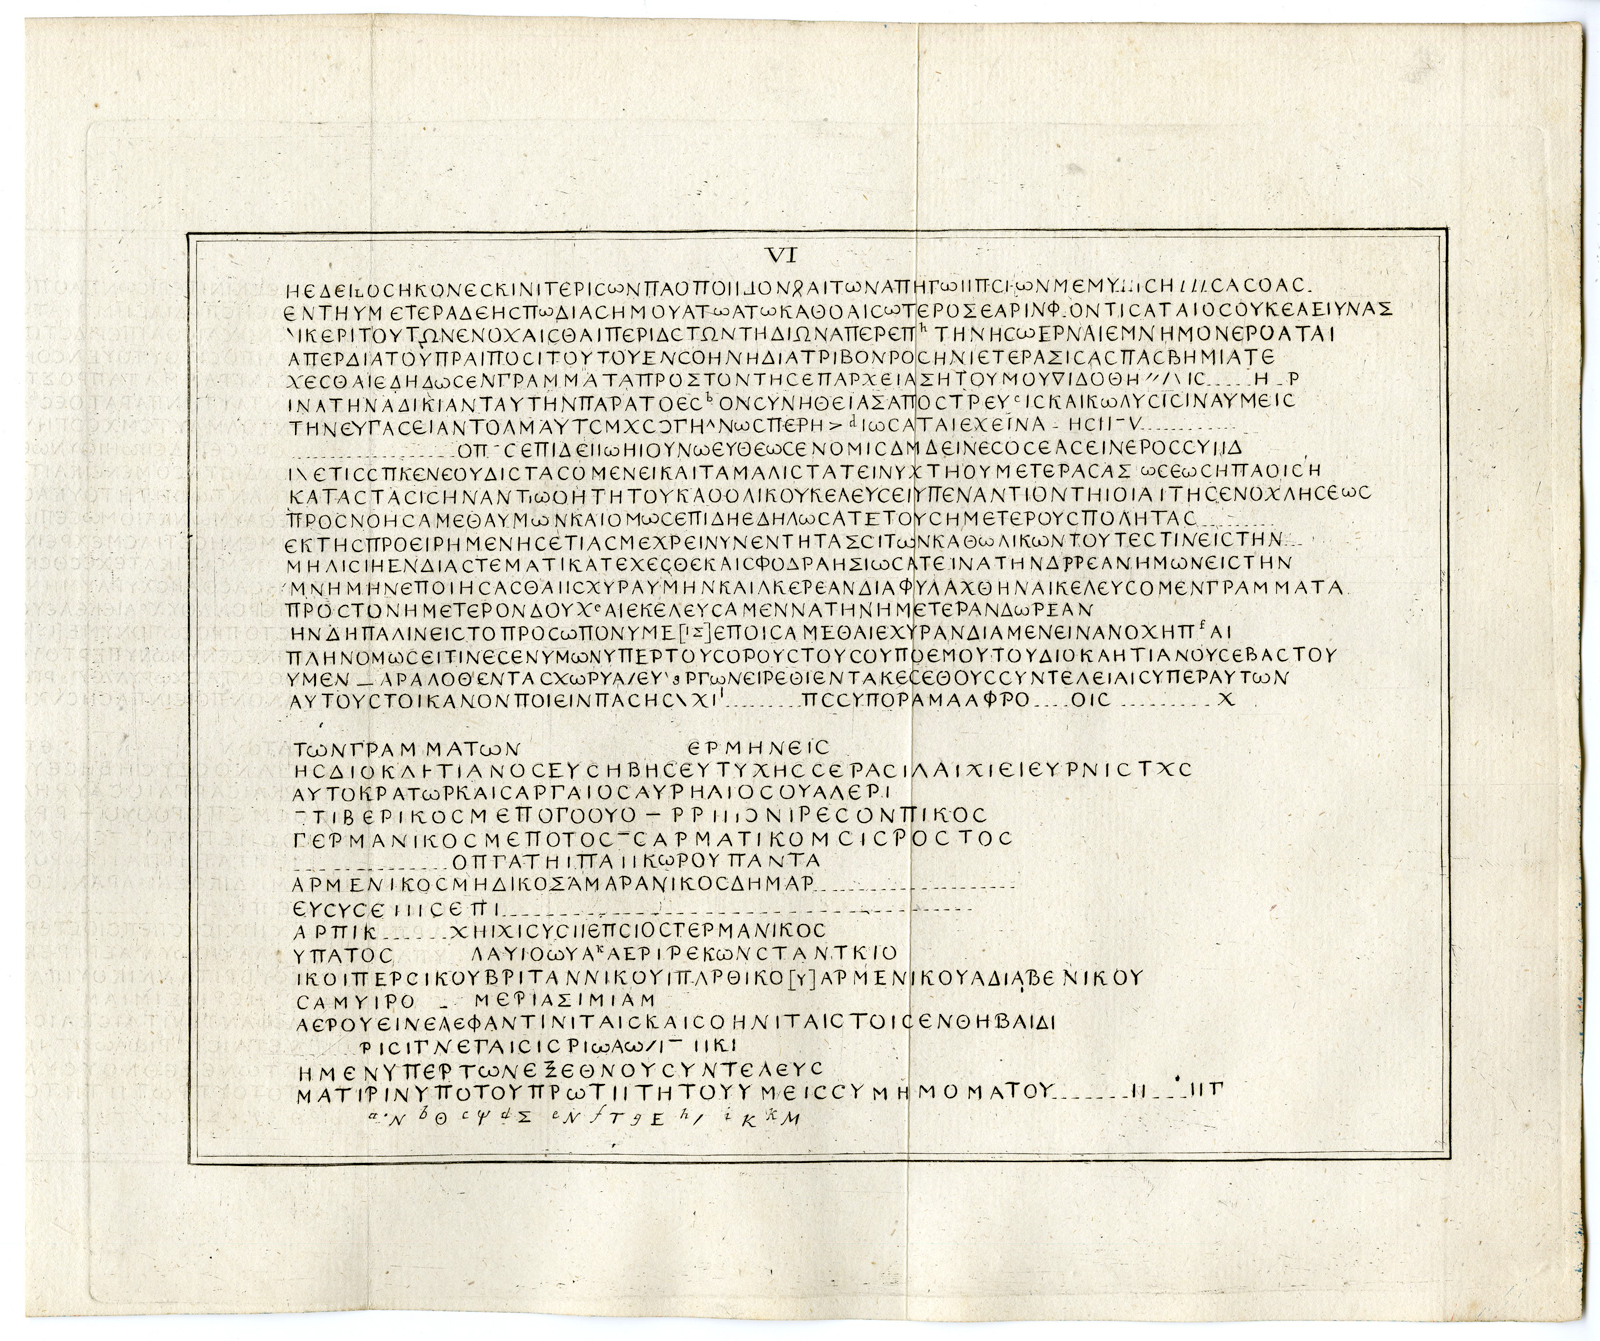 VI
ΗΕΔΕΙΟCΗΚΟΝΕCΚΙΝΙΤΕΡΙCωΝΠΑΟΠΟΙ
ΕΝΤΗΥΜΕΤΕΡΑΔΕΗCΠωΔΙΑCΗΜΟΥΑΤωΑΤωΚΑΘΟΑΙCωΤΕΡΟΣΕΑΡΙΝΦ.ΟΝΤΙCΑΤΑΙΟCΟΥΚΕΑΕΙΥΝΑΣ
ΙΚΕΡΙΤΟΥΤΩΝΕΝΟΧΑΙCΘΑΙΠΕΡΙΔCΤΩΝΤΗΔΙΩΝΑΠΕΡΕΠʰΤΗΝΗCωΕΡΝΑΙΕΜΝΗΜΟΝΕΡΟΑΤΑΙ
ΑΠΕΡΔΙΑΤΟΥΠΡΑΙΠΟCΙΤΟΥΤΟΥΕΝCΟΗΝΗΔΙΑΤΡΙΒΟΝΡΟCΗΝΙΕΤΕΡΑΣΙCΑCΠΑCΒΗΜΙΑΤΕ
ΧΕCΘΑΙΕΔΗΔωCΕΝΓΡΑΜΜΑΤΑΠΡΟΣΤΟΝΤΗCΕΠΑΡΧΕΙΑΣΗΤΟΥΜΟΥ∇ΙΔΟΘΗ
ΙΝΑΤΗΝΑΔΙΚΙΑΝΤΑΥΤΗΝΠΑΡΑΤΟΕCᵇΟΝCΥΝΗΘΕΙΑΣΑΠΟCΤΡΕΥᶜΙCΚΑΙΚωΛΥCΙCΙΝΑΥΜΕΙC
ΤΗΝΕΥΓΑCΕΙΑΝΤΟΛΜΑΥΤCΜΧCƆΓΗ^ΝωCΠΕΡΗ>ᵈΙωCΑΤΑΙΕΧΕΙΝΑ - ΗCΙΙ-V
ΟΠ-CΕΠΙΔΕΙΙωΗΙΟΥΝωΕΥΘΕωCΕΝΟΜΙCΔΜΔΕΙΝΕCΟCΕΑCΕΙΝΕΡΟCCΥΙΙΔ
Ι\ΕΤΙCCΠΚΕΝΕΟΥΔΙCΤΑCΟΜΕΝΕΙΚΑΙΤΑΜΑΛΙCΤΑΤΕΙΝΥΧΤΗΟΥΜΕΤΕΡΑCΑΣ ωCΕωCΗΠΑΟΙCΗ
ΚΑΤΑCΤΑCΙCΗΝΑΝΤΙωΟΗΤΗΤΟΥΚΑΘΟΛΙΚΟΥΚΕΛΕΥCΕΙΥΠΕΝΑΝΤΙΟΝΤΗΙΟΙΑΙΤΗCΕΝΟΧΛΗCΕωC
ΠΡΟCΝΟΗCΑΜΕΘΑΥΜωΝΚΑΙΟΜωCΕΠΙΔΗΕΔΗΛωCΑΤΕΤΟΥCΗΜΕΤΕΡΟΥCΠΟΛΗΤΑC
ΕΚΤΗCΠΡΟΕΙΡΗΜΕΝΗCΕΤΙΑCΜΕΧΡΕΙΝΥΝΕΝΤΗΤΑΣCΙΤωΝΚΑΘωΛΙΚωΝΤΟΥΤΕCΤΙΝΕΙCΤΗΝ
ΜΗΛΙCΙΗΕΝΔΙΑCΤΕΜΑΤΙΚΑΤΕΧΕCΘΕΚΑΙCΦΟΔΡΑΗΣΙωCΑΤΕΙΝΑΤΗΝΔΡΡΕΑΝΗΜΩΝΕΙCΤΗΝ
ΜΝΗΜΗΝΕΠΟΙΗCΑCΘΑΙΙCΧΥΡΑΥΜΗΝΚΑΙΛΚΕΡΕΑΝΔΙΑΦΥΛΑΧΘΗΝΑΙΚΕΛΕΥCΟΜΕΝΓΡΑΜΜΑΤΑ
ΠΡΟCΤΟΝΗΜΕΤΕΡΟΝΔΟΥΧᵉΑΙΕΚΕΛΕΥCΑΜΕΝΝΑΤΗΝΗΜΕΤΕΡΑΝΔωΡΕΑΝ
ΗΝΔΗΠΑΛΙΝΕΙCΤΟΠΡΟCωΠΟΝΥΜΕ[ΙΣ]ΕΠΟΙCΑΜΕΘΑΙΕΧΥΡΑΝΔΙΑΜΕΝΕΙΝΑΝΟΧΗΠᶠΑΙ
ΠΛΗΝΟΜωCΕΙΤΙΝΕCΕΝΥΜωΝΥΠΕΡΤΟΥCΟΡΟΥCΤΟΥCΟΥΠΟΕΜΟΥΤΟΥΔΙΟΚΛΗΤΙΑΝΟΥCΕΒΑCΤΟΥ
ΥΜΕΝ — ΑΡΑΛΟΘΕΝΤΑCΧωΡΥΑ/ΕΥ'ᵍΡΓωΝΕΙΡΕΘΙΕΝΤΑΚΕCΕΘΟΥCCΥΝΤΕΛΕΙΑΙCΥΠΕΡΑΥΤωΝ
ΑΥΤΟΥCΤΟΙΚΑΝΟΝΠΟΙΕΙΝΠΑCΗC\ΧΙⁱ.........ΠCCΥΠΟΡΑΜΑΑΦΡΟ....ΟΙC ............Χ
ΤωΝΓΡΑΜΜΑΤωΝ ΕΡΜΗΝΕΙC
ΗCΔΙΟΚΛΗΤΙΑΝΟCΕΥCΗΒΗCΕΥΤΥΧΗCCΕΡΑCΙΛΑΙΧΙΕΙΕΥΡΝΙCΤΧC
ΑΥΤΟΚΡΑΤωΡΚΑΙCΑΡΓΑΙΟCΑΥΡΗΛΙΟCΟΥΑΛΕΡΙ
ΤΙΒΕΡΙΚΟCΜΕΠΟΓΟΟΥΟ — ΡΡΙΙΙƆΝΙΡΕCΟΝΠΙΚΟC
ΓΕΡΜΑΝΙΚΟCΜΕΠΟΤΟC-CΑΡΜΑΤΙΚΟΜCΙCΡΟCΤΟC
...............ΟΠΓΑΤΗΙΠΑΙΙΚωΡΟΥΠΑΝΤΑ
ΑΡΜΕΝΙΚΟCΜΗΔΙΚΟΣΑΜΑΡΑΝΙΚΟCΔΗΜΑΡ
ΕΥCΥCΕΙΙΙCΕΠΙ
ΑΡΠΙΚ......ΧΗΙΧΙCΥCΙΙΕΠCΙΟCΤΕΡΜΑΝΙΚΟC
ΥΠΑΤΟC ΛΑΥΙΟωΥΑᵏΑΕΡΙΡΕΚωΝCΤΑΝΤΚΙΟ
ΙΚΟΙΠΕΡCΙΚΟΥΒΡΙΤΑΝΝΙΚΟΥΙΠΛΡΘΙΚΟ[Υ]ΑΡΜΕΝΙΚΟΥΑΔΙΑΒΕΝΙΚΟΥ
CΑΜΥΙΡΟ - ΜΕΡΙΑΣΙΜΙΑΜ
ΑΕΡΟΥΕΙΝΕΛΕΦΑΝΤΙΝΙΤΑΙCΚΑΙCΟΗΝΙΤΑΙCΤΟΙCΕΝΘΗΒΑΙΔΙ
ΡΙCΙΓΝΕΓΑΙCΙCΡΙωΑω/Ι- ΙΙΚΙ
ΗΜΕΝΥΠΕΡΤωΝΕΞΕΘΝΟΥCΥΝΤΕΛΕΥC
ΜΑΤΙΡΙΝΥΠΟΤΟΥΠΡωΤΙΙΤΗΤΟΥΥΜΕΙCCΥΜΗΜΟΜΑΤΟΥ.......ΙΙ....ΙΙΓ
a·Ν bΘ cψ dΣ eΝ fΤ gΕ h/ iΚ kΜ